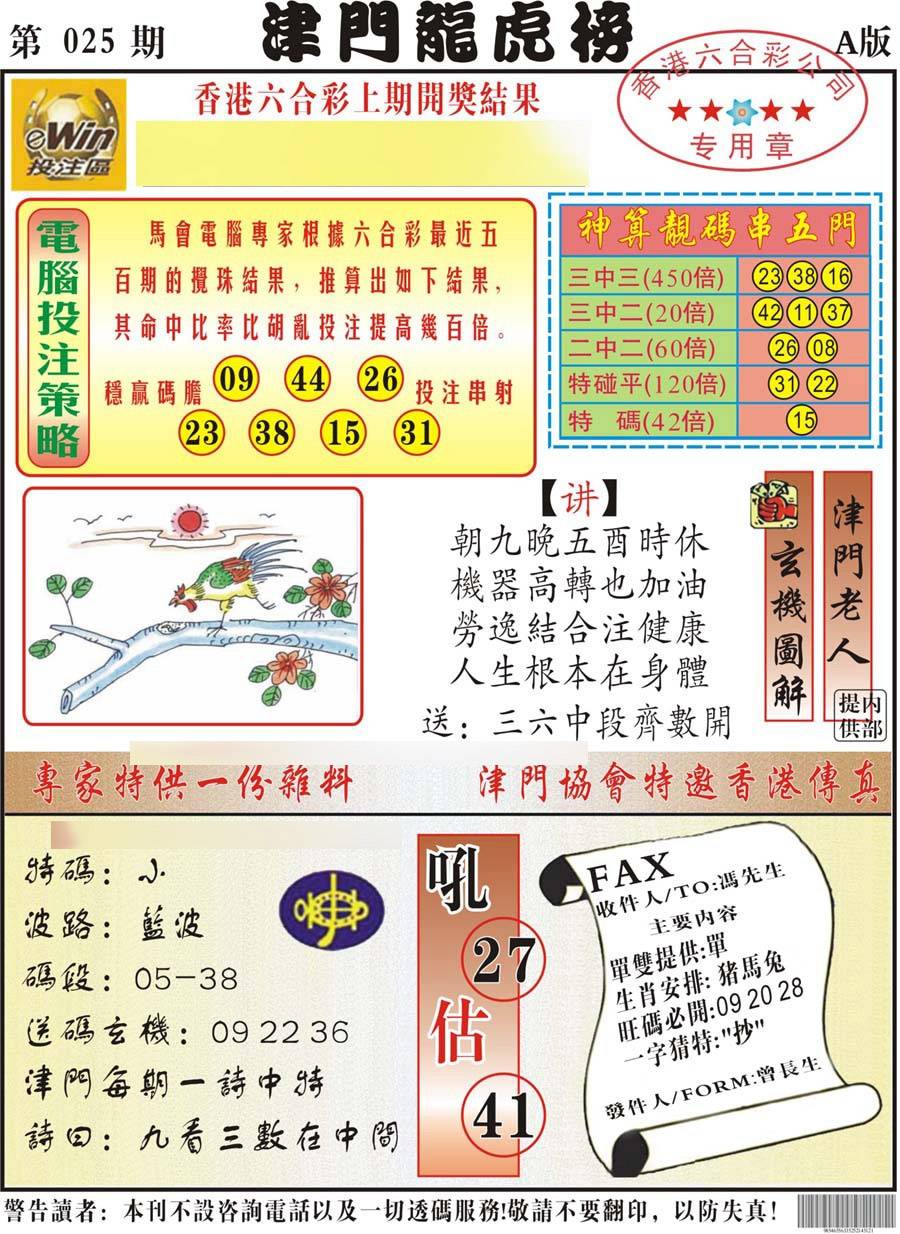 第 025 期
津門龍虎榜
A版
香港六合彩公司
专用章
eWin
投注區
香港六合彩上期開獎結果
電腦投注策略
馬會電腦專家根據六合彩最近五
百期的攪珠結果，推算出如下結果，
其命中比率比胡亂投注提高幾百倍。
穩贏碼膽 09 44 26 投注串射
23 38 15 31
神算靚碼串五門
三中三(450倍) 23 38 16
三中二(20倍) 42 11 37
二中二(60倍) 26 08
特碰平(120倍) 31 22
特 碼(42倍) 15
【讲】
朝九晚五酉時休
機器高轉也加油
勞逸結合注健康
人生根本在身體
送：三六中段齊數開
玄機圖解
津門老人
内部
提供
專家特供一份雜料
津門協會特邀香港傳真
特碼：小
波路：藍波
碼段：05-38
送碼玄機：09 22 36
津門每期一詩中特
詩曰：九看三數在中間
吼
27
估
41
FAX
收件人/TO:馮先生
主要内容
單雙提供:單
生肖安排:豬馬兔
旺碼必開:09 20 28
一字猜特:"抄"
發件人/FORM:曾長生
警告讀者：本刊不設咨詢電話以及一切透碼服務!敬請不要翻印，以防失真!